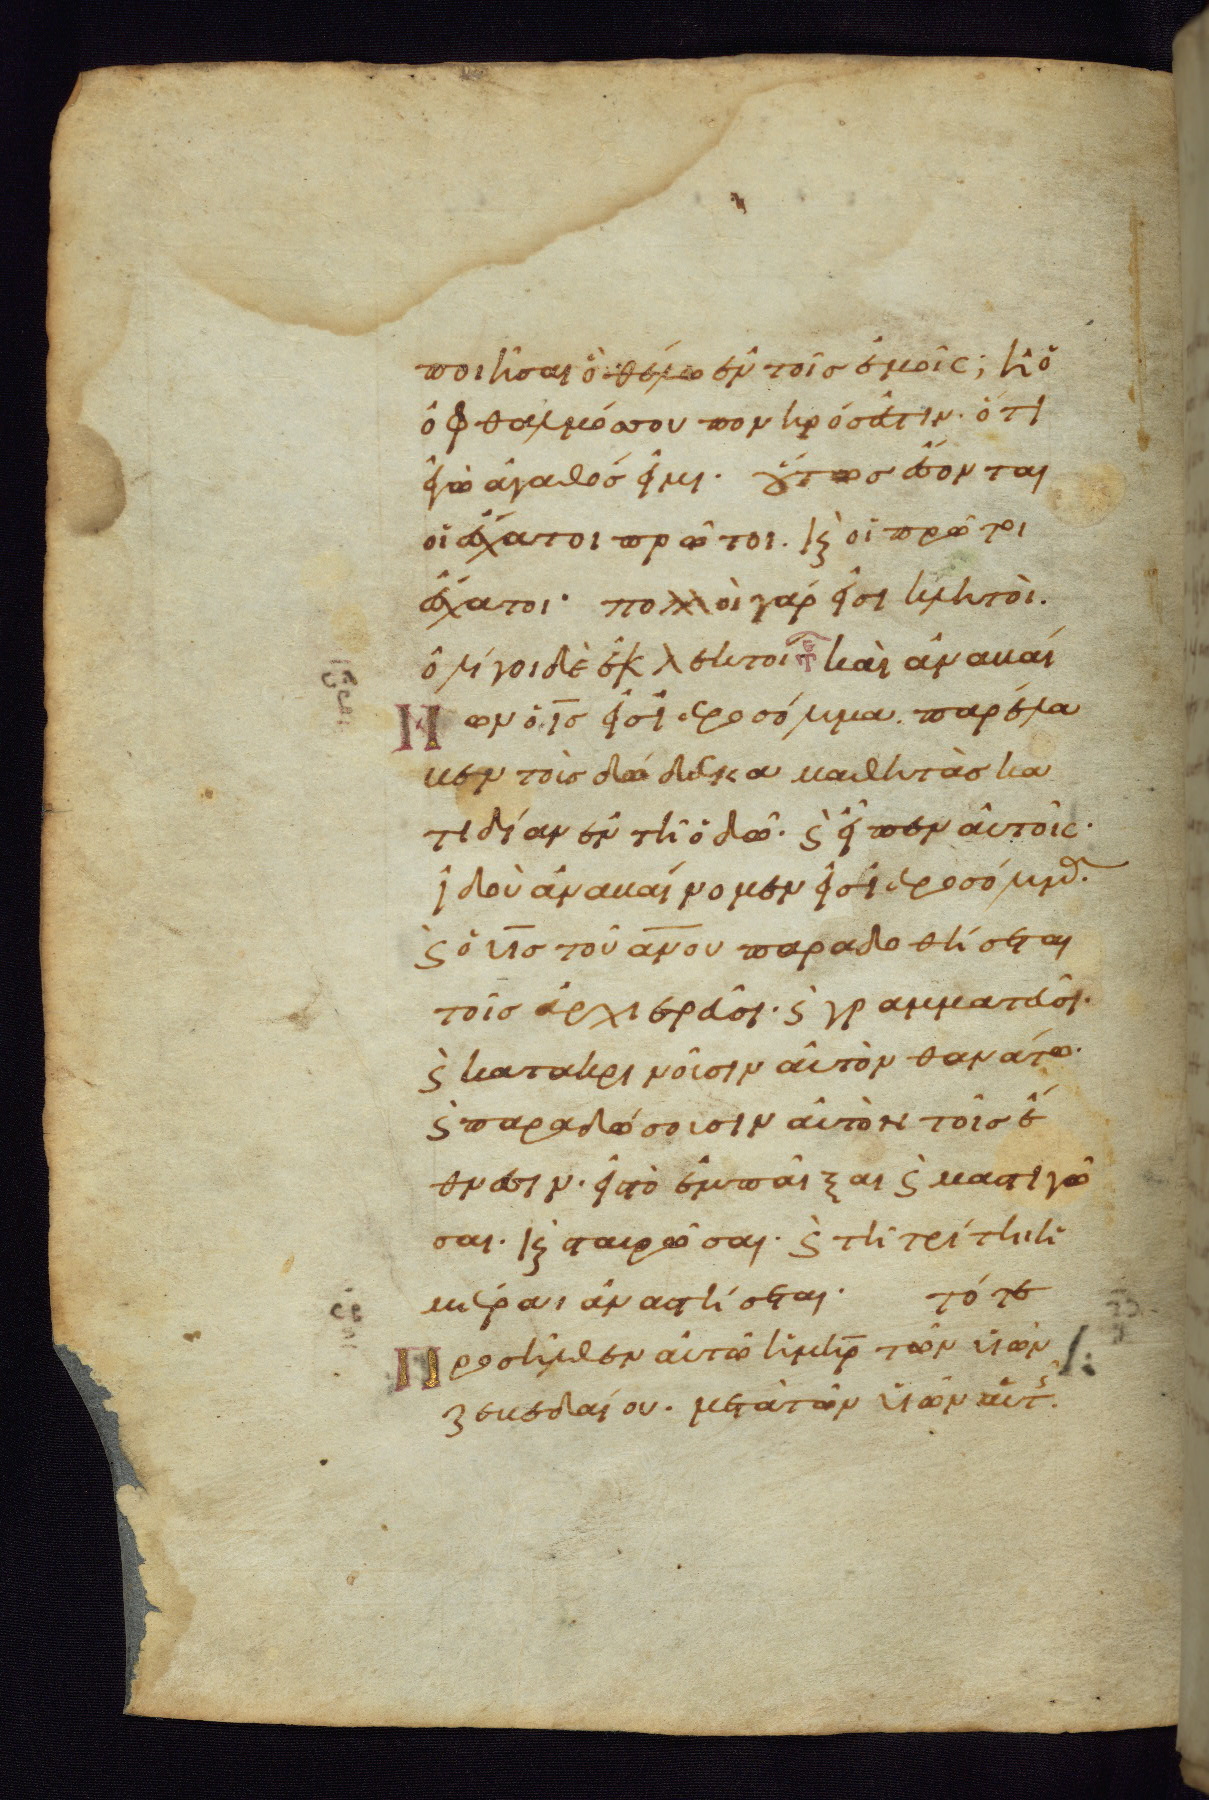 ποιῆσαι ὃ θέλω ἐν τοῖς ἐμοῖς; ἢ ὁ
ὀφθαλμόσου πονηρόσἐστιν. ὅτι
ἐγὼ ἀγαθόσ εἰμι. οὕτωσ ἔσονται
οἱ ἔσχατοι πρῶτοι. κ̀ οἱ πρῶτοι
ἔσχατοι· πολλοὶ γάρ εἰσι κλητοὶ.
ὀλίγοι δὲ ἐκλεκτοί καὶ ἀναβαί
νων ὁ ι̅σ εἰσ ἱεροσόλυμα. παρέλα
βεν τοὺσ δώδεκα μαθητὰσ κα
τιδίαν ἐν τῆ ὁδῶ. κ̀ εἶπεν αὐτοῖς·
ἰδοὺ ἀναβαίνομεν εἰσ ἱεροσόλυμα.
κ̀ ὁ υ̅ι̅σ τοῦ α̅ν̅ου παραδοθήσεται
τοῖσ ἀρχιερεῦσι. κ̀ γραμματεῦσι.
κ̀ κατακρινοῦσιν αὐτὸν θανάτω.
κ̀ παραδώσουσιν αὐτὸν τοῖσ ἔ
θνεσιν. εἰστὸ ἐμπαῖξαι κ̀ μαστιγῶ
σαι. κ̀ σταυρῶσαι. κ̀ τῆ τρίτη ἡ
μέραι ἀναστήσεται. τότε
Προσῆλθεν αὐτῶ ἡ μη̅ρ τῶν υἱῶν
ζεβεδαίου. μετὰ τῶν υἱῶν αὐτ̑ς.